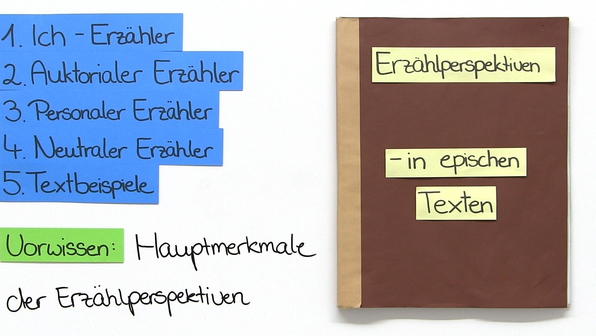 1. Ich-Erzähler
2. Auktorialer Erzähler
3. Personaler Erzähler
4. Neutraler Erzähler
5. Textbeispiele
Vorwissen: Hauptmerkmale
der Erzählperspektiven
Erzählperspektiven
- in epischen
Texten